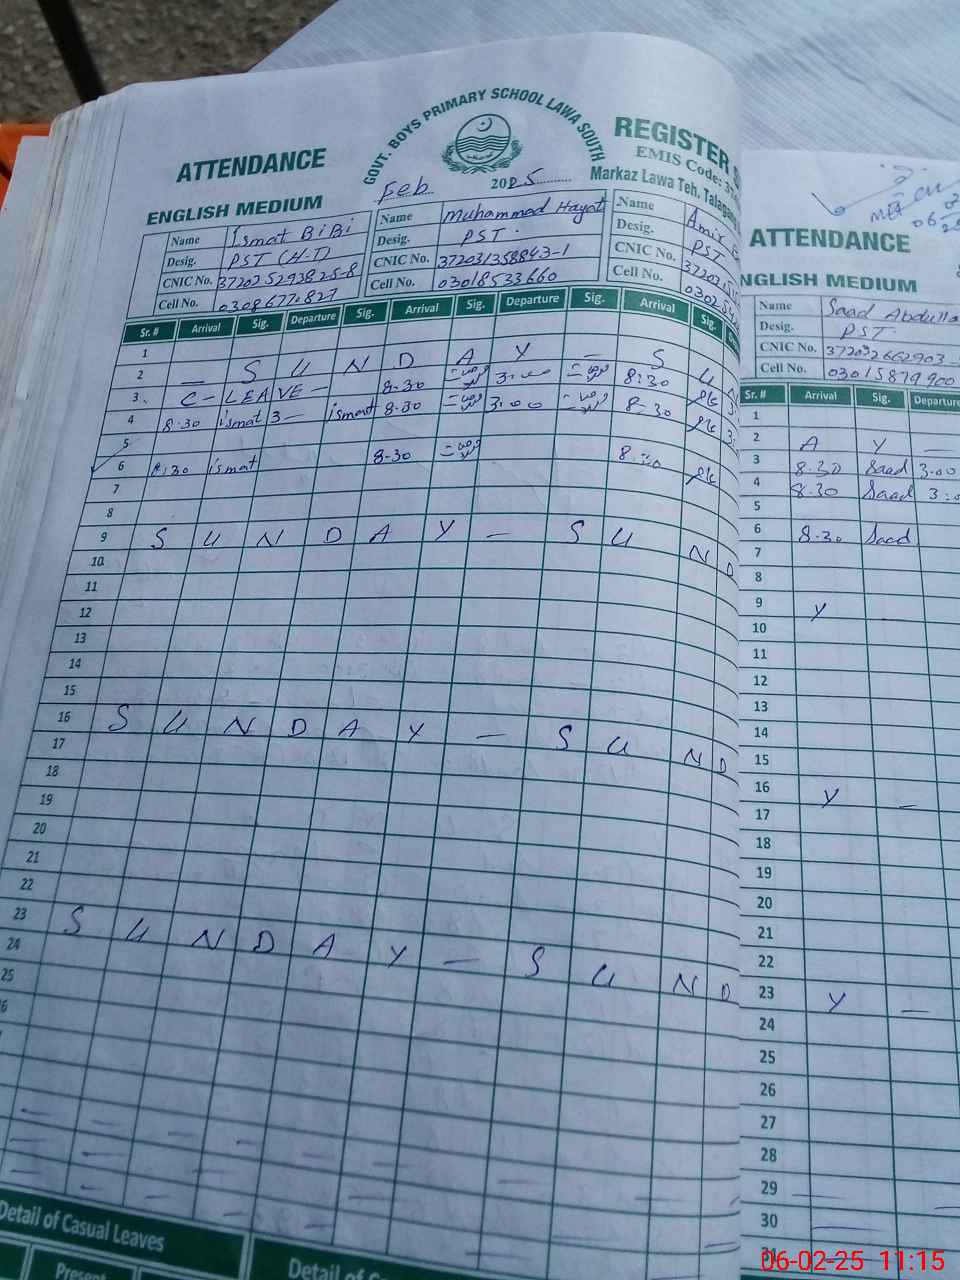 GOVT. BOYS PRIMARY SCHOOL LAWA SOUTH
ATTENDANCE
REGISTER
EMIS Code:
Feb 2025
Markaz Lawa Teh.
ENGLISH MEDIUM
Name Ismat BiBi
Desig. PST (H-T)
CNIC No.
Cell No.
Name Muhammad Hayat
Desig. PST.
CNIC No. 372031358843-1
Cell No. 03018533660
Name Amir
Desig. PST
CNIC No.
Cell No.
Sr. # Arrival Sig. Departure Sig. Arrival Sig. Departure Sig. Arrival Sig.
1
2 — S U N D A Y — S U N
3 C-LEAVE- 8-30 3:00 8:30
4 8-30 ismat 3— ismat 8-30 3:00 8-30
5
6 8:30 ismat 8-30 8:30
7
8
9 S U N D A Y — S U N D
10
11
12
13
14
15
16 S U N D A Y — S U N D
17
18
19
20
21
22
23 S U N D A Y — S U N D
24
25
Detail of Casual Leaves
Present
ATTENDANCE
NGLISH MEDIUM
Name Saad Abdulla
Desig. PST.
CNIC No. 372032662903
Cell No. 03015879900
Sr. # Arrival Sig. Departure
1
2 A Y —
3 8-30 Saad 3-00
4 8-30 Saad
5
6 8-30 Saad
7
8
9 Y
10
11
12
13
14
15
16 Y —
17
18
19
20
21
22
23 Y —
24
25
26
27
28
29
30
06-02-25 11:15